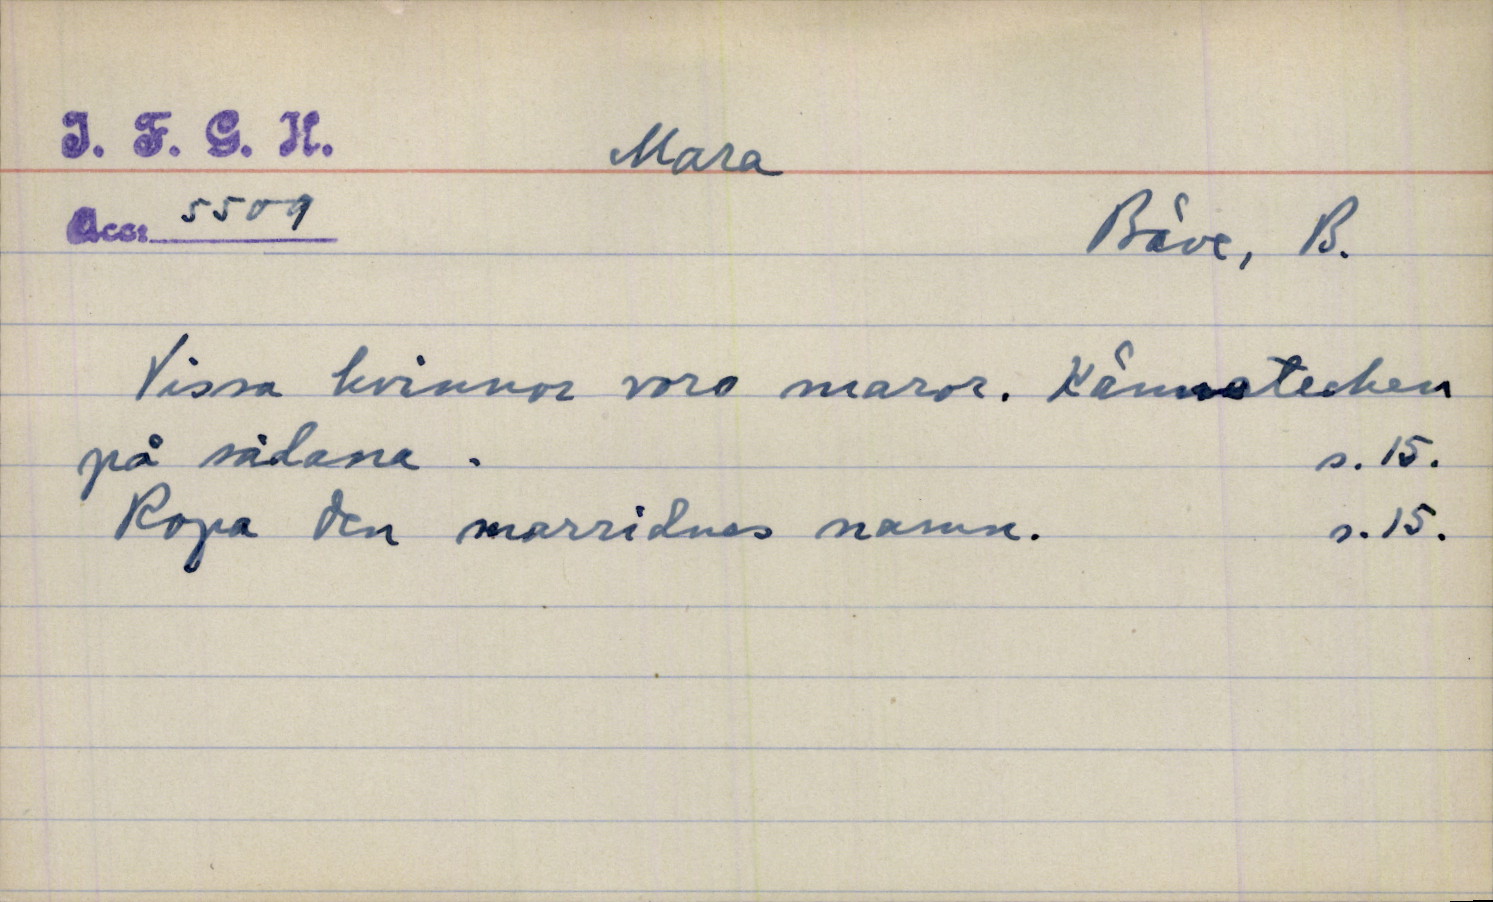 I. F. G. H.
Mara
Acc: 5509
Bäve, B.
Vissa kvinnor voro maror. Kännetecken
på sådana. s. 15.
Ropa den marridnes namn. s. 15.